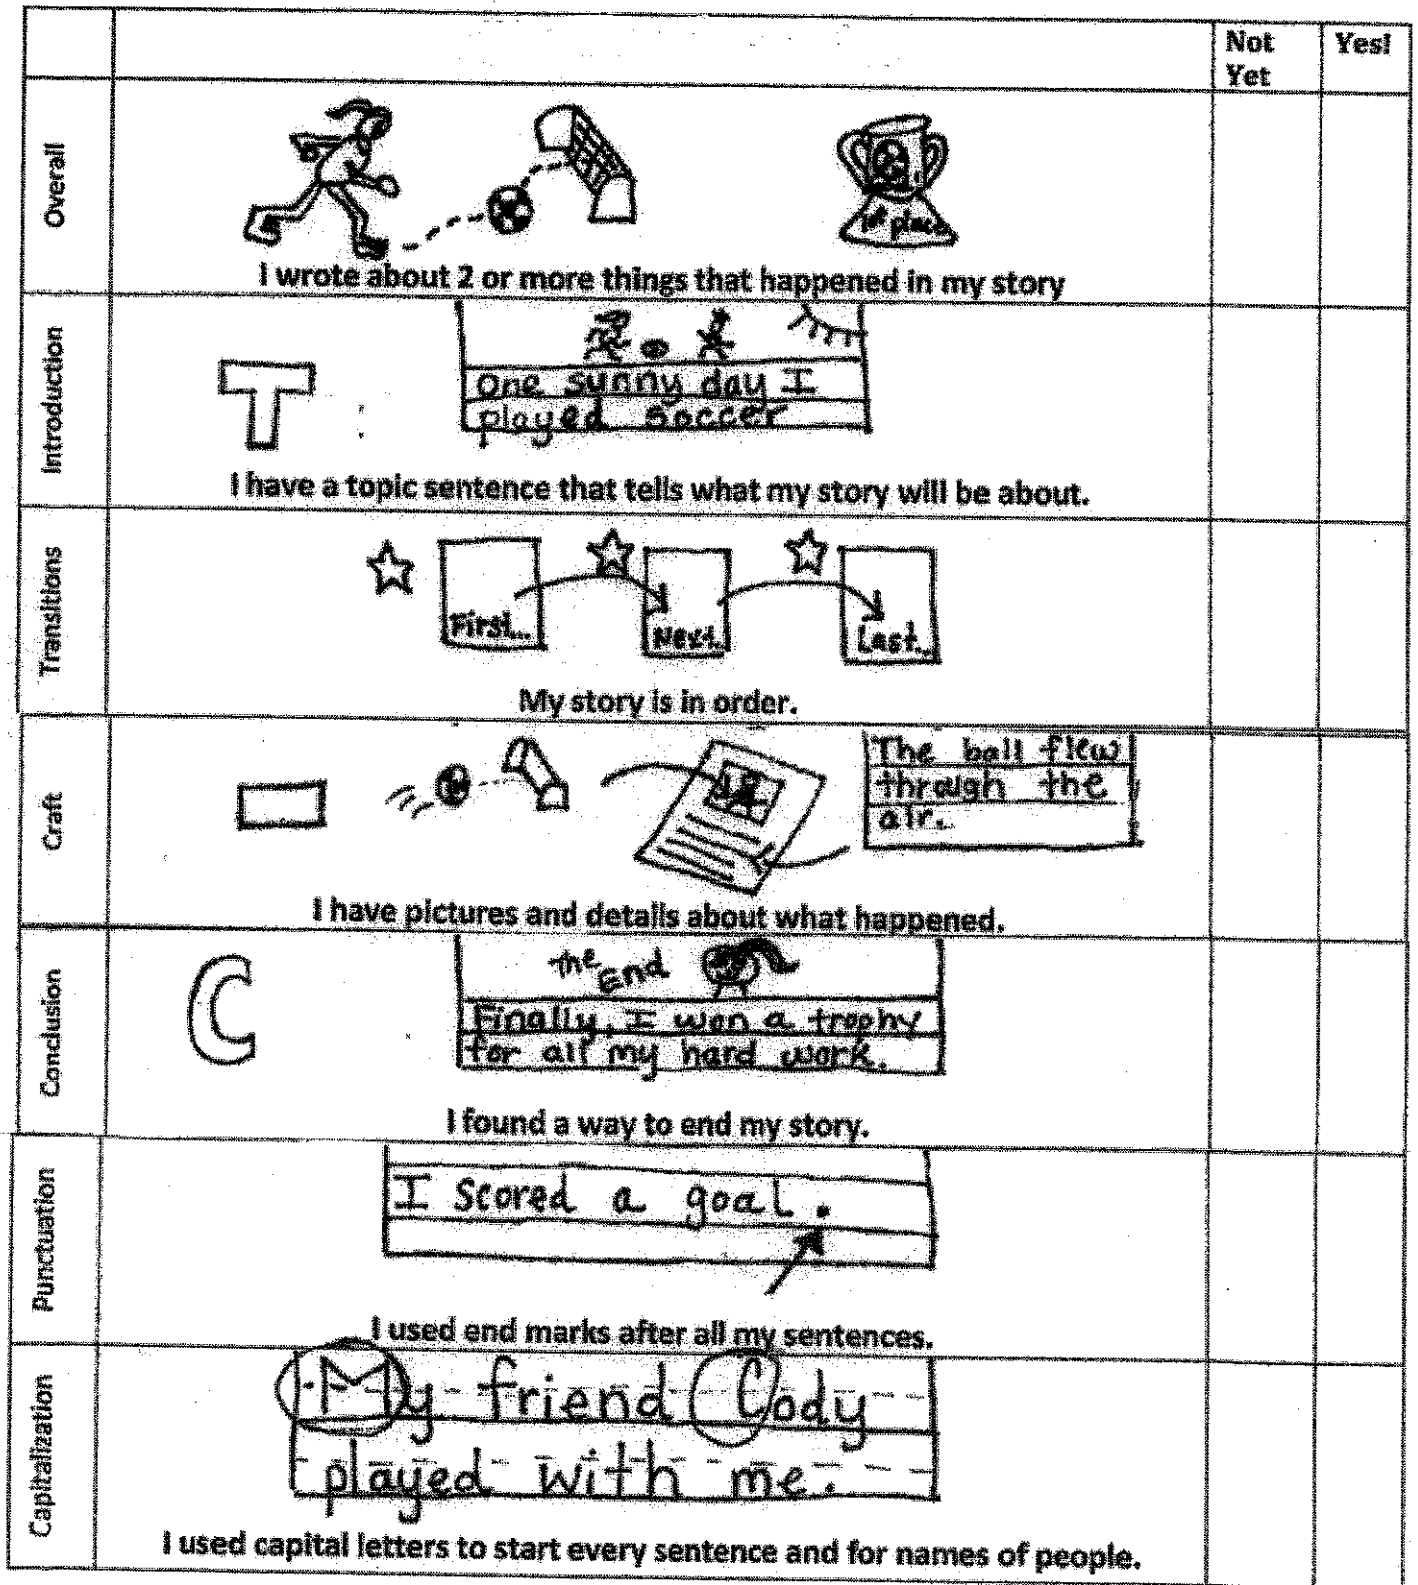 Not
Yet
Yes!
Overall
1st place
I wrote about 2 or more things that happened in my story
Introduction
T
One sunny day I
played soccer
I have a topic sentence that tells what my story will be about.
Transitions
First...
Next..
Last...
My story is in order.
Craft
The ball flew
through the
air.
I have pictures and details about what happened.
Conclusion
C
the End
Finally, I won a trophy
for all my hard work.
I found a way to end my story.
Punctuation
I scored a goal.
I used end marks after all my sentences.
Capitalization
My friend Cody
played with me.
I used capital letters to start every sentence and for names of people.